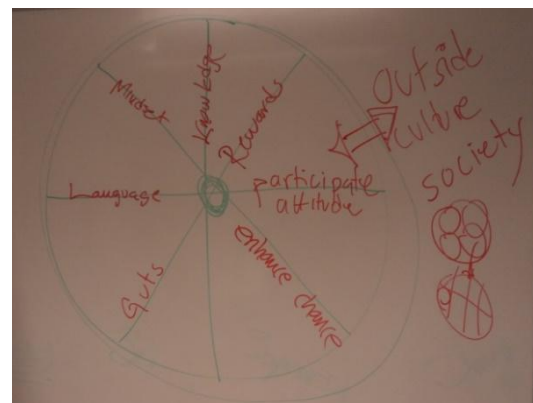 Knowledge
Rewards
Mindset
Language
participate
attitude
Guts
enhance chance
Outside
culture
society